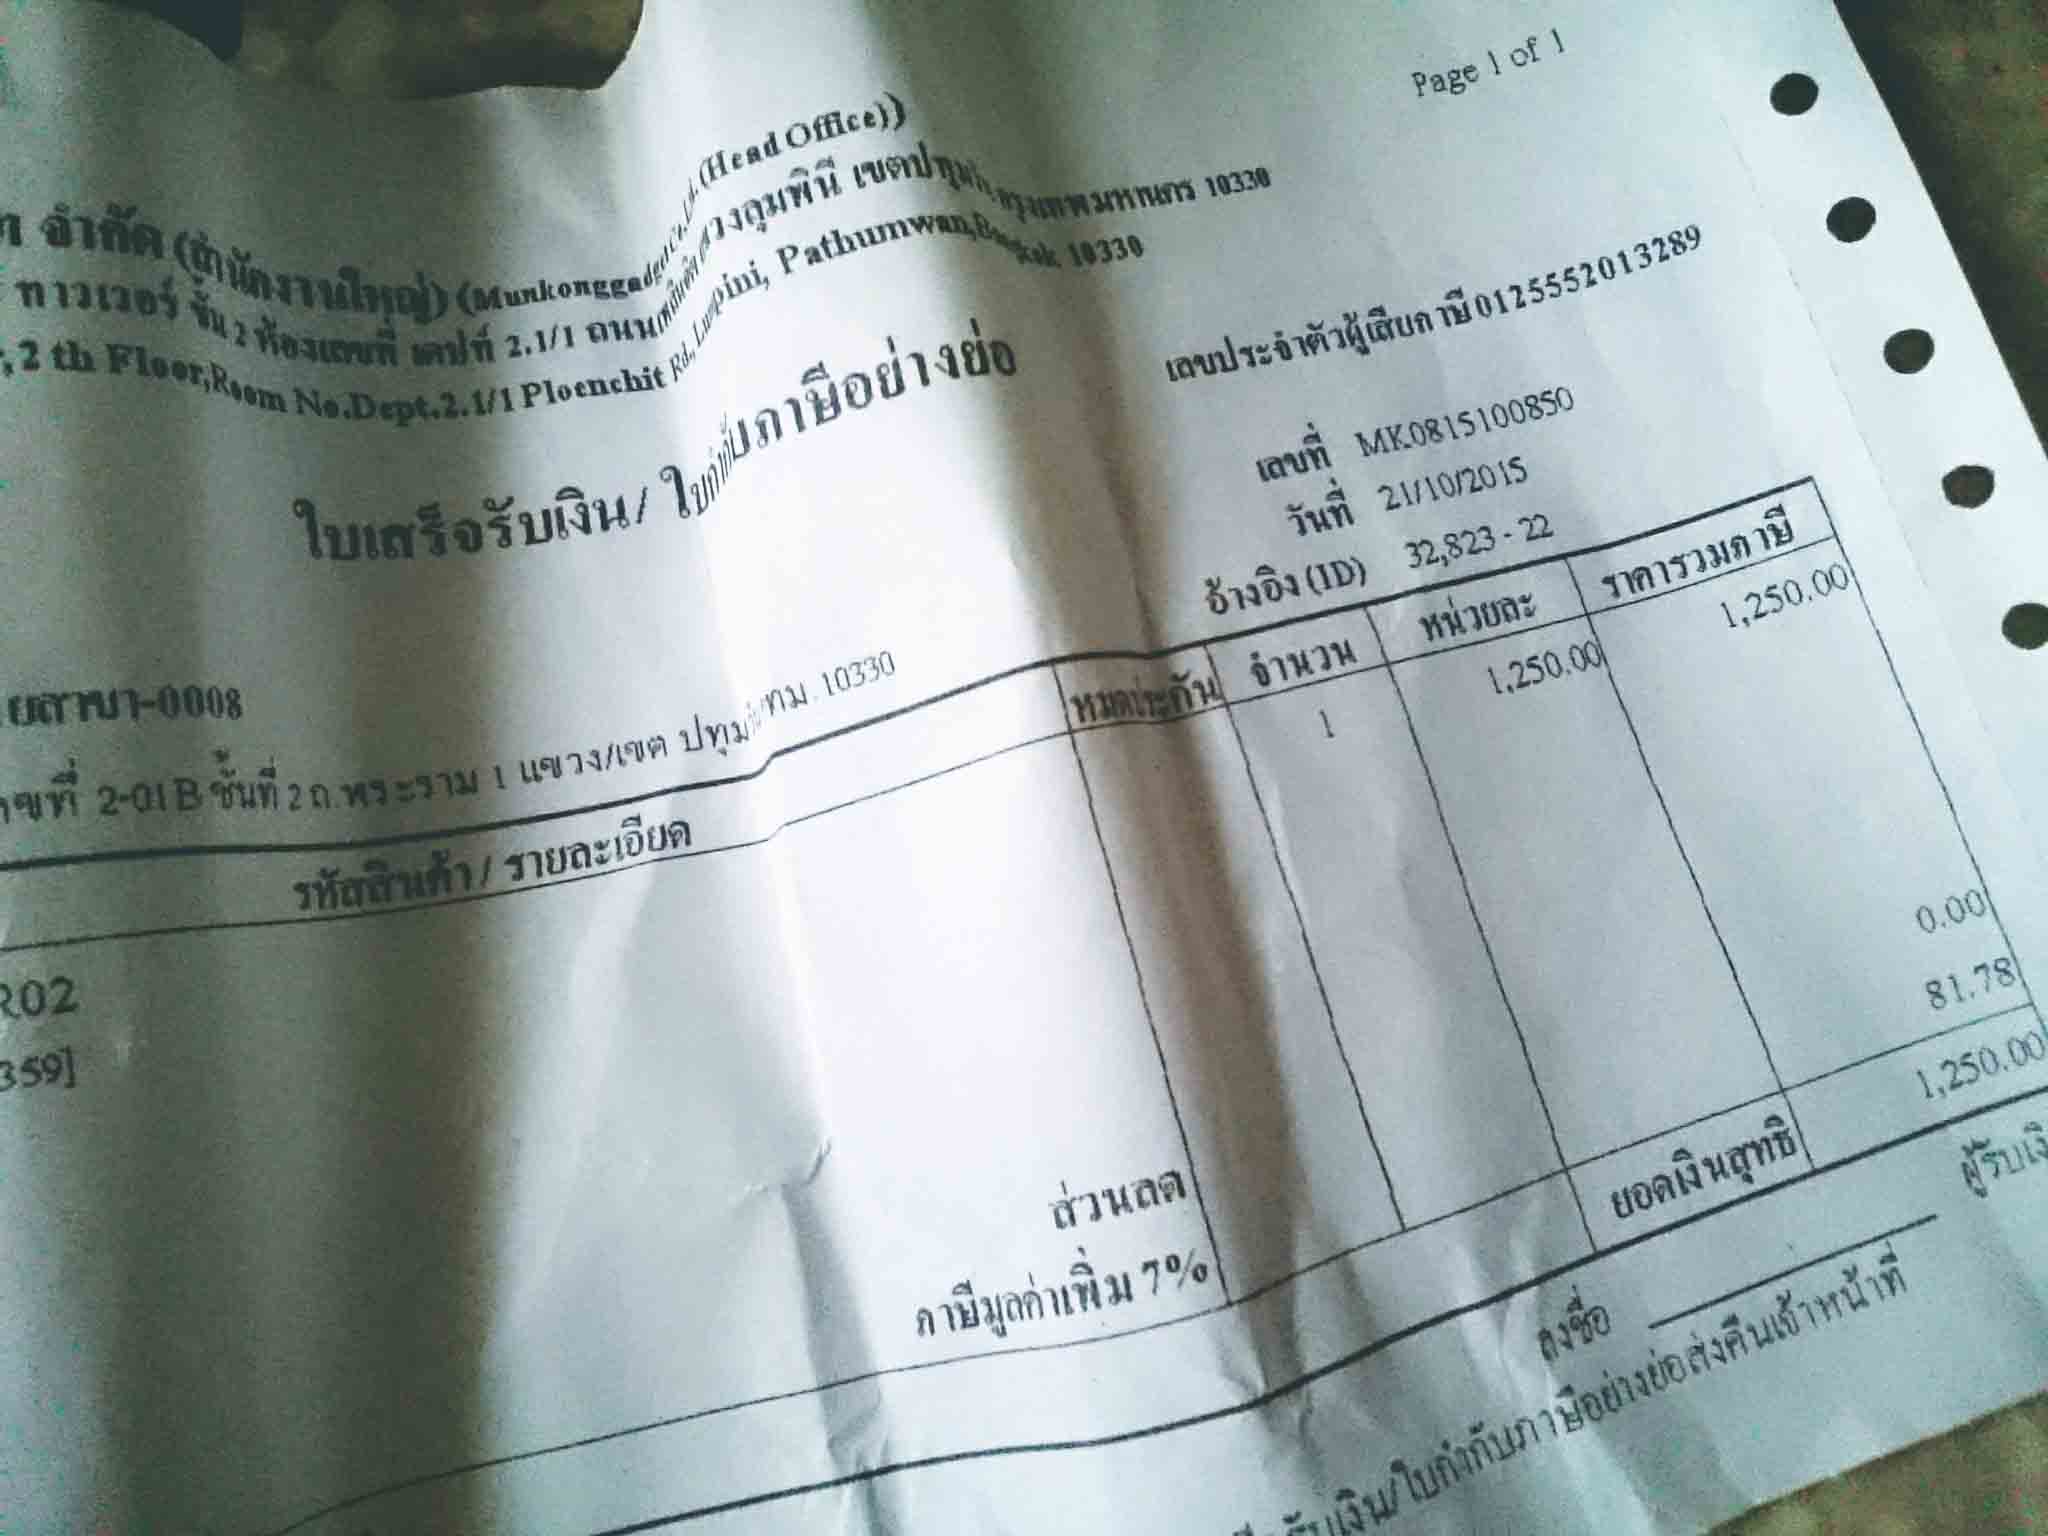 Page 1 of 1
จำกัด (สำนักงานใหญ่) (Munkonggadget Co., Ltd. (Head Office))
ทาวเวอร์ ชั้น 2 ห้องเลขที่ เดปท์ 2.1/1 ถนนเพลินจิต แขวงลุมพินี เขตปทุมวัน กรุงเทพมหานคร 10330
,2 th Floor,Room No.Dept.2.1/1 Ploenchit Rd., Lumpini, Pathumwan,Bangkok 10330
เลขประจำตัวผู้เสียภาษี 0125552013289
ใบเสร็จรับเงิน/ ใบกำกับภาษีอย่างย่อ
เลขที่ MK0815100850
วันที่ 21/10/2015
อ้างอิง (ID) 32,823 - 22
ยสาขา-0008
ขที่ 2-01B ชั้นที่ 2 ถ.พระราม 1 แขวง/เขต ปทุมวัน กทม. 10330
รหัสสินค้า / รายละเอียด หมดประกัน จำนวน หน่วยละ ราคารวมภาษี
R02 1 1,250.00 1,250.00
359]
ส่วนลด 0.00
ภาษีมูลค่าเพิ่ม 7% 81.78
ยอดเงินสุทธิ 1,250.00
ลงชื่อ ผู้รับเงิ
รับเงิน/ใบกำกับภาษีอย่างย่อส่งคืนเจ้าหน้าที่